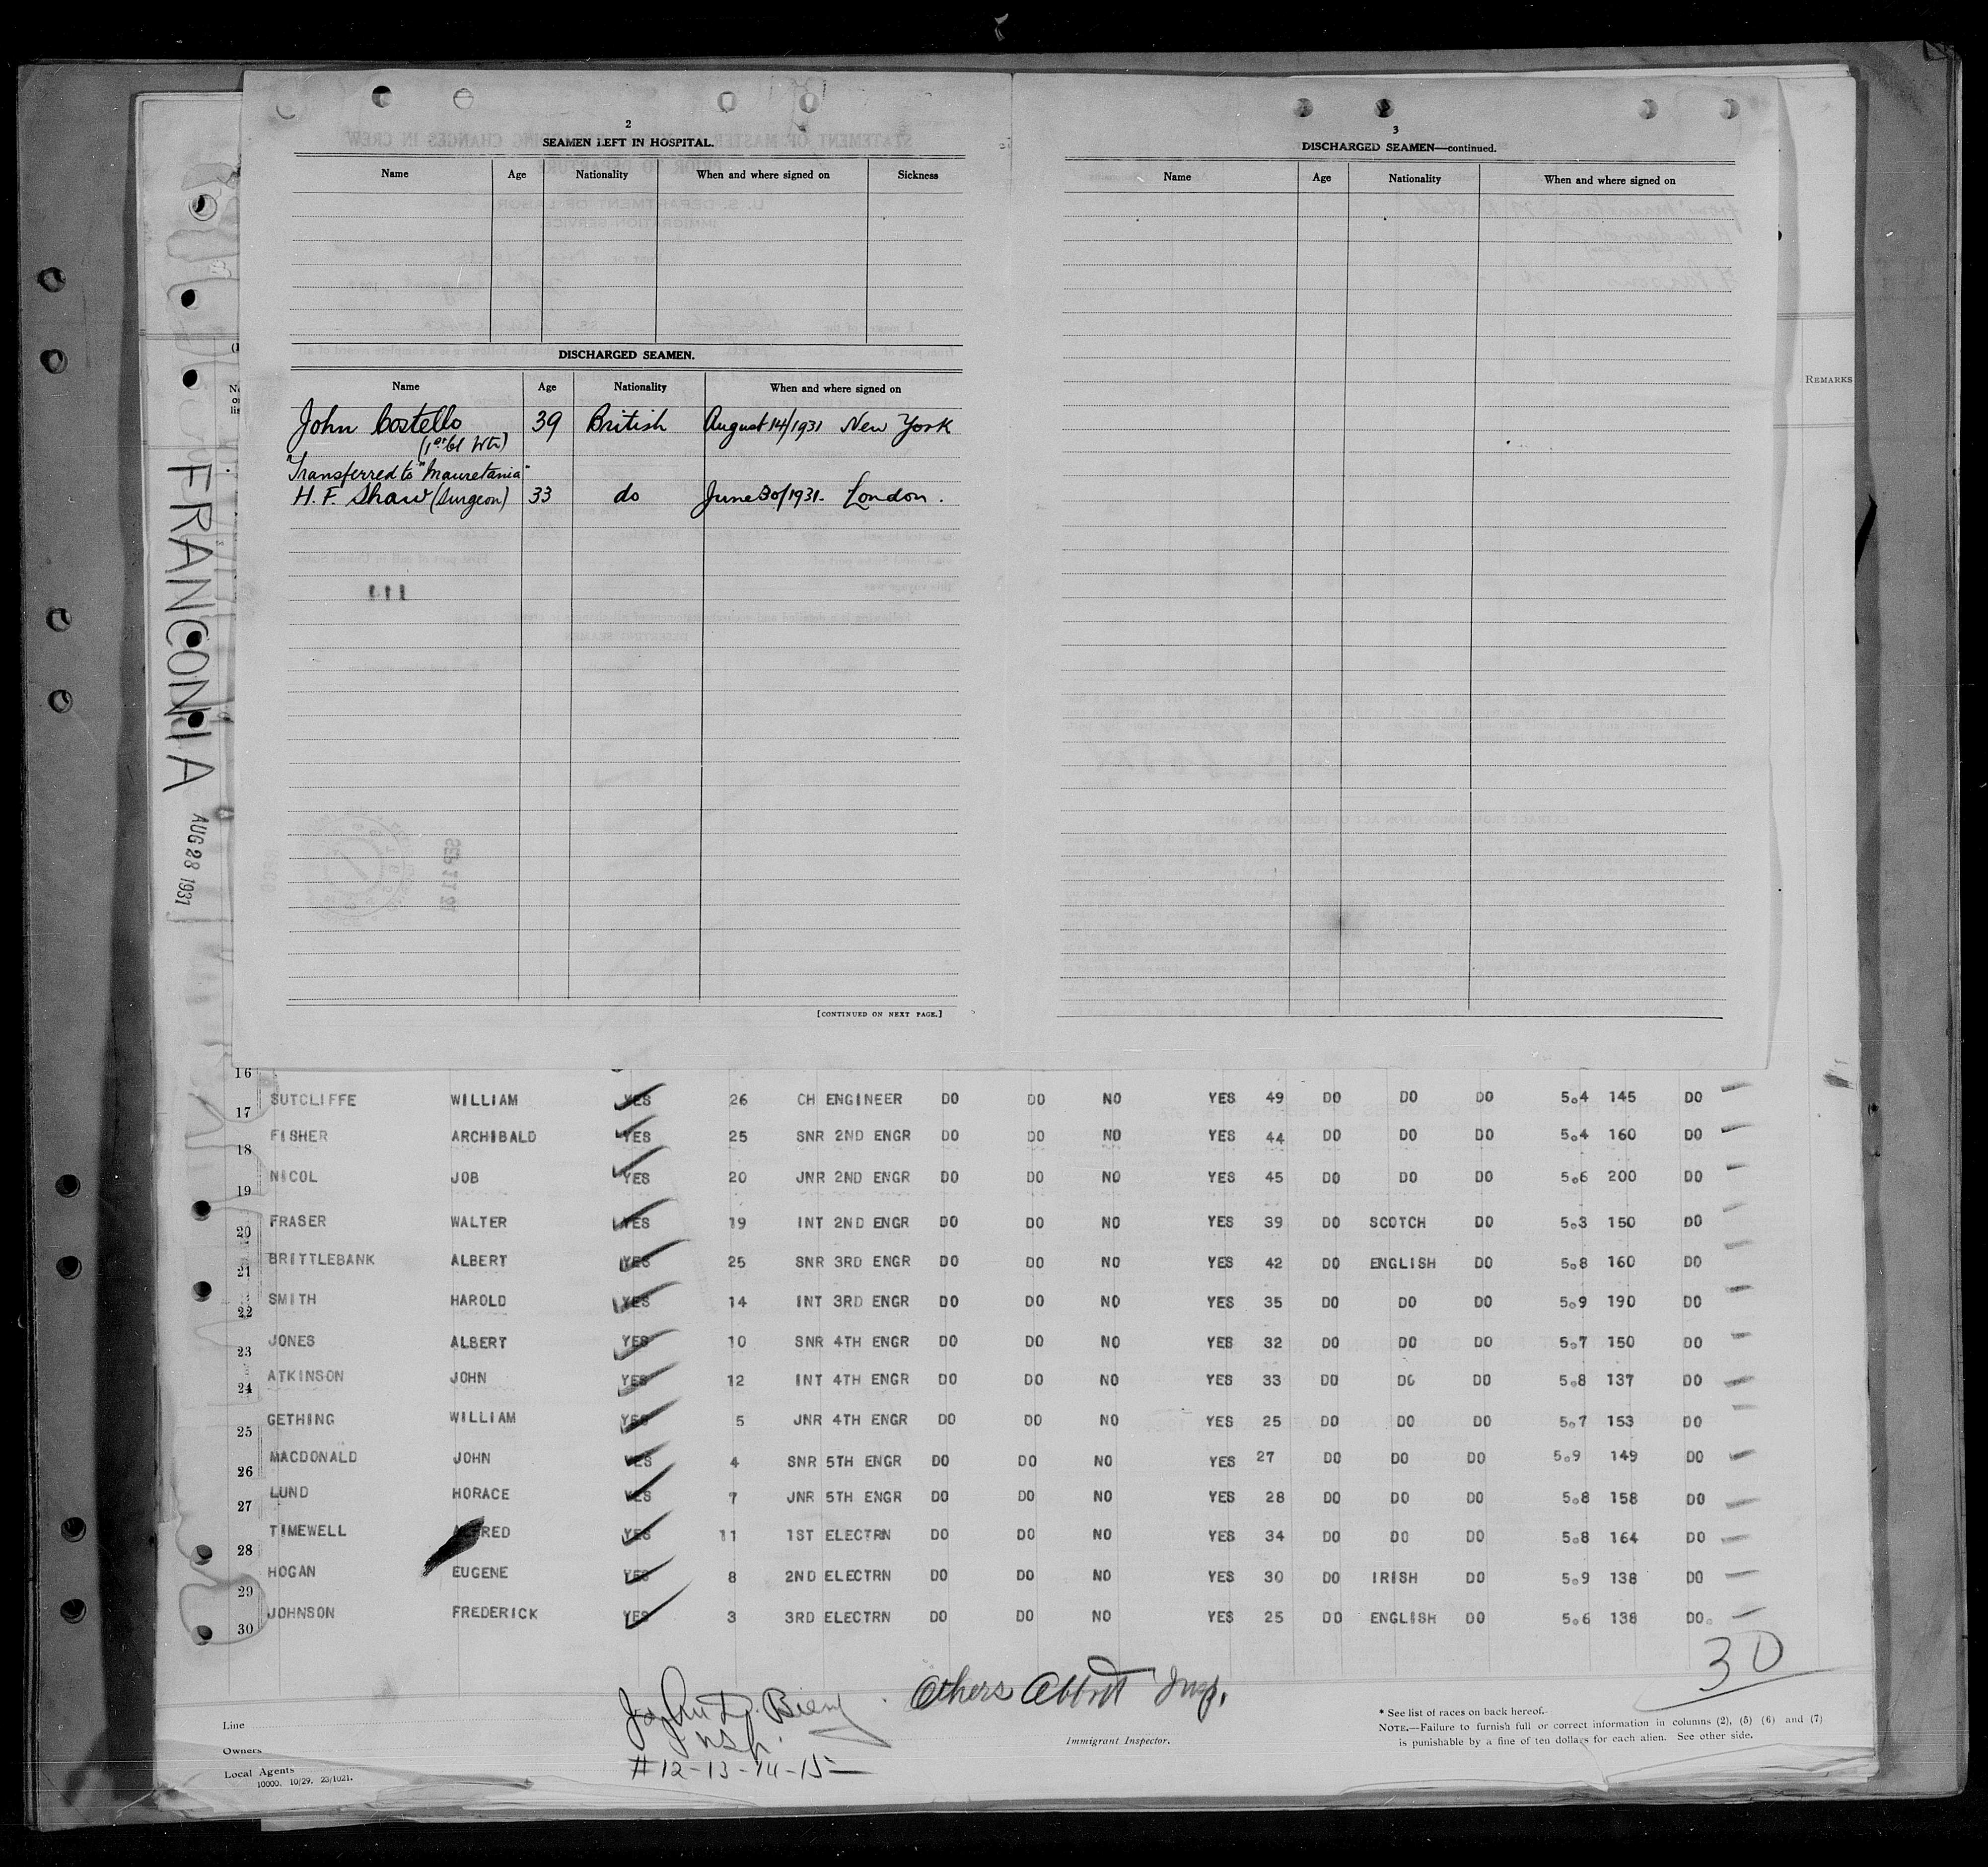 2
SEAMEN LEFT IN HOSPITAL.
Name Age Nationality When and where signed on Sickness
DISCHARGED SEAMEN.
Name Age Nationality When and where signed on
John Costello 39 British August 14/1931 New York
(1st Cl Wtr)
"Transferred to "Mauretania"
H. F. Shaw (Surgeon) 33 do June 30/1931. London.
[CONTINUED ON NEXT PAGE.]
3
DISCHARGED SEAMEN—continued.
Name Age Nationality When and where signed on
REMARKS
FRANCONIA
AUG 28 1931
16
SUTCLIFFE WILLIAM YES 26 CH ENGINEER DO DO NO YES 49 DO DO DO 5.4 145 DO
17
FISHER ARCHIBALD YES 25 SNR 2ND ENGR DO DO NO YES 44 DO DO DO 5.4 160 DO
18
NICOL JOB YES 20 JNR 2ND ENGR DO DO NO YES 45 DO DO DO 5.6 200 DO
19
FRASER WALTER YES 19 INT 2ND ENGR DO DO NO YES 39 DO SCOTCH DO 5.3 150 DO
20
BRITTLEBANK ALBERT YES 25 SNR 3RD ENGR DO DO NO YES 42 DO ENGLISH DO 5.8 160 DO
21
SMITH HAROLD YES 14 INT 3RD ENGR DO DO NO YES 35 DO DO DO 5.9 190 DO
22
JONES ALBERT YES 10 SNR 4TH ENGR DO DO NO YES 32 DO DO DO 5.7 150 DO
23
ATKINSON JOHN YES 12 INT 4TH ENGR DO DO NO YES 33 DO DO DO 5.8 137 DO
24
GETHING WILLIAM YES 5 JNR 4TH ENGR DO DO NO YES 25 DO DO DO 5.7 153 DO
25
MACDONALD JOHN YES 4 SNR 5TH ENGR DO DO NO YES 27 DO DO DO 5.9 149 DO
26
LUND HORACE YES 7 JNR 5TH ENGR DO DO NO YES 28 DO DO DO 5.8 158 DO
27
TIMEWELL YES 11 1ST ELECTRN DO DO NO YES 34 DO DO DO 5.8 164 DO
28
HOGAN EUGENE YES 8 2ND ELECTRN DO DO NO YES 30 DO IRISH DO 5.9 138 DO
29
JOHNSON FREDERICK YES 3 3RD ELECTRN DO DO NO YES 25 DO ENGLISH DO 5.6 138 DO.
30
30
John D.
Insp.
#12-13-14-15-
Others Insp.
Immigrant Inspector.
Line
Owners
Local Agents
10000. 10/29. 23/1021.
* See list of races on back hereof.
NOTE.—Failure to furnish full or correct information in columns (2), (5) (6) and (7)
is punishable by a fine of ten dollars for each alien. See other side.